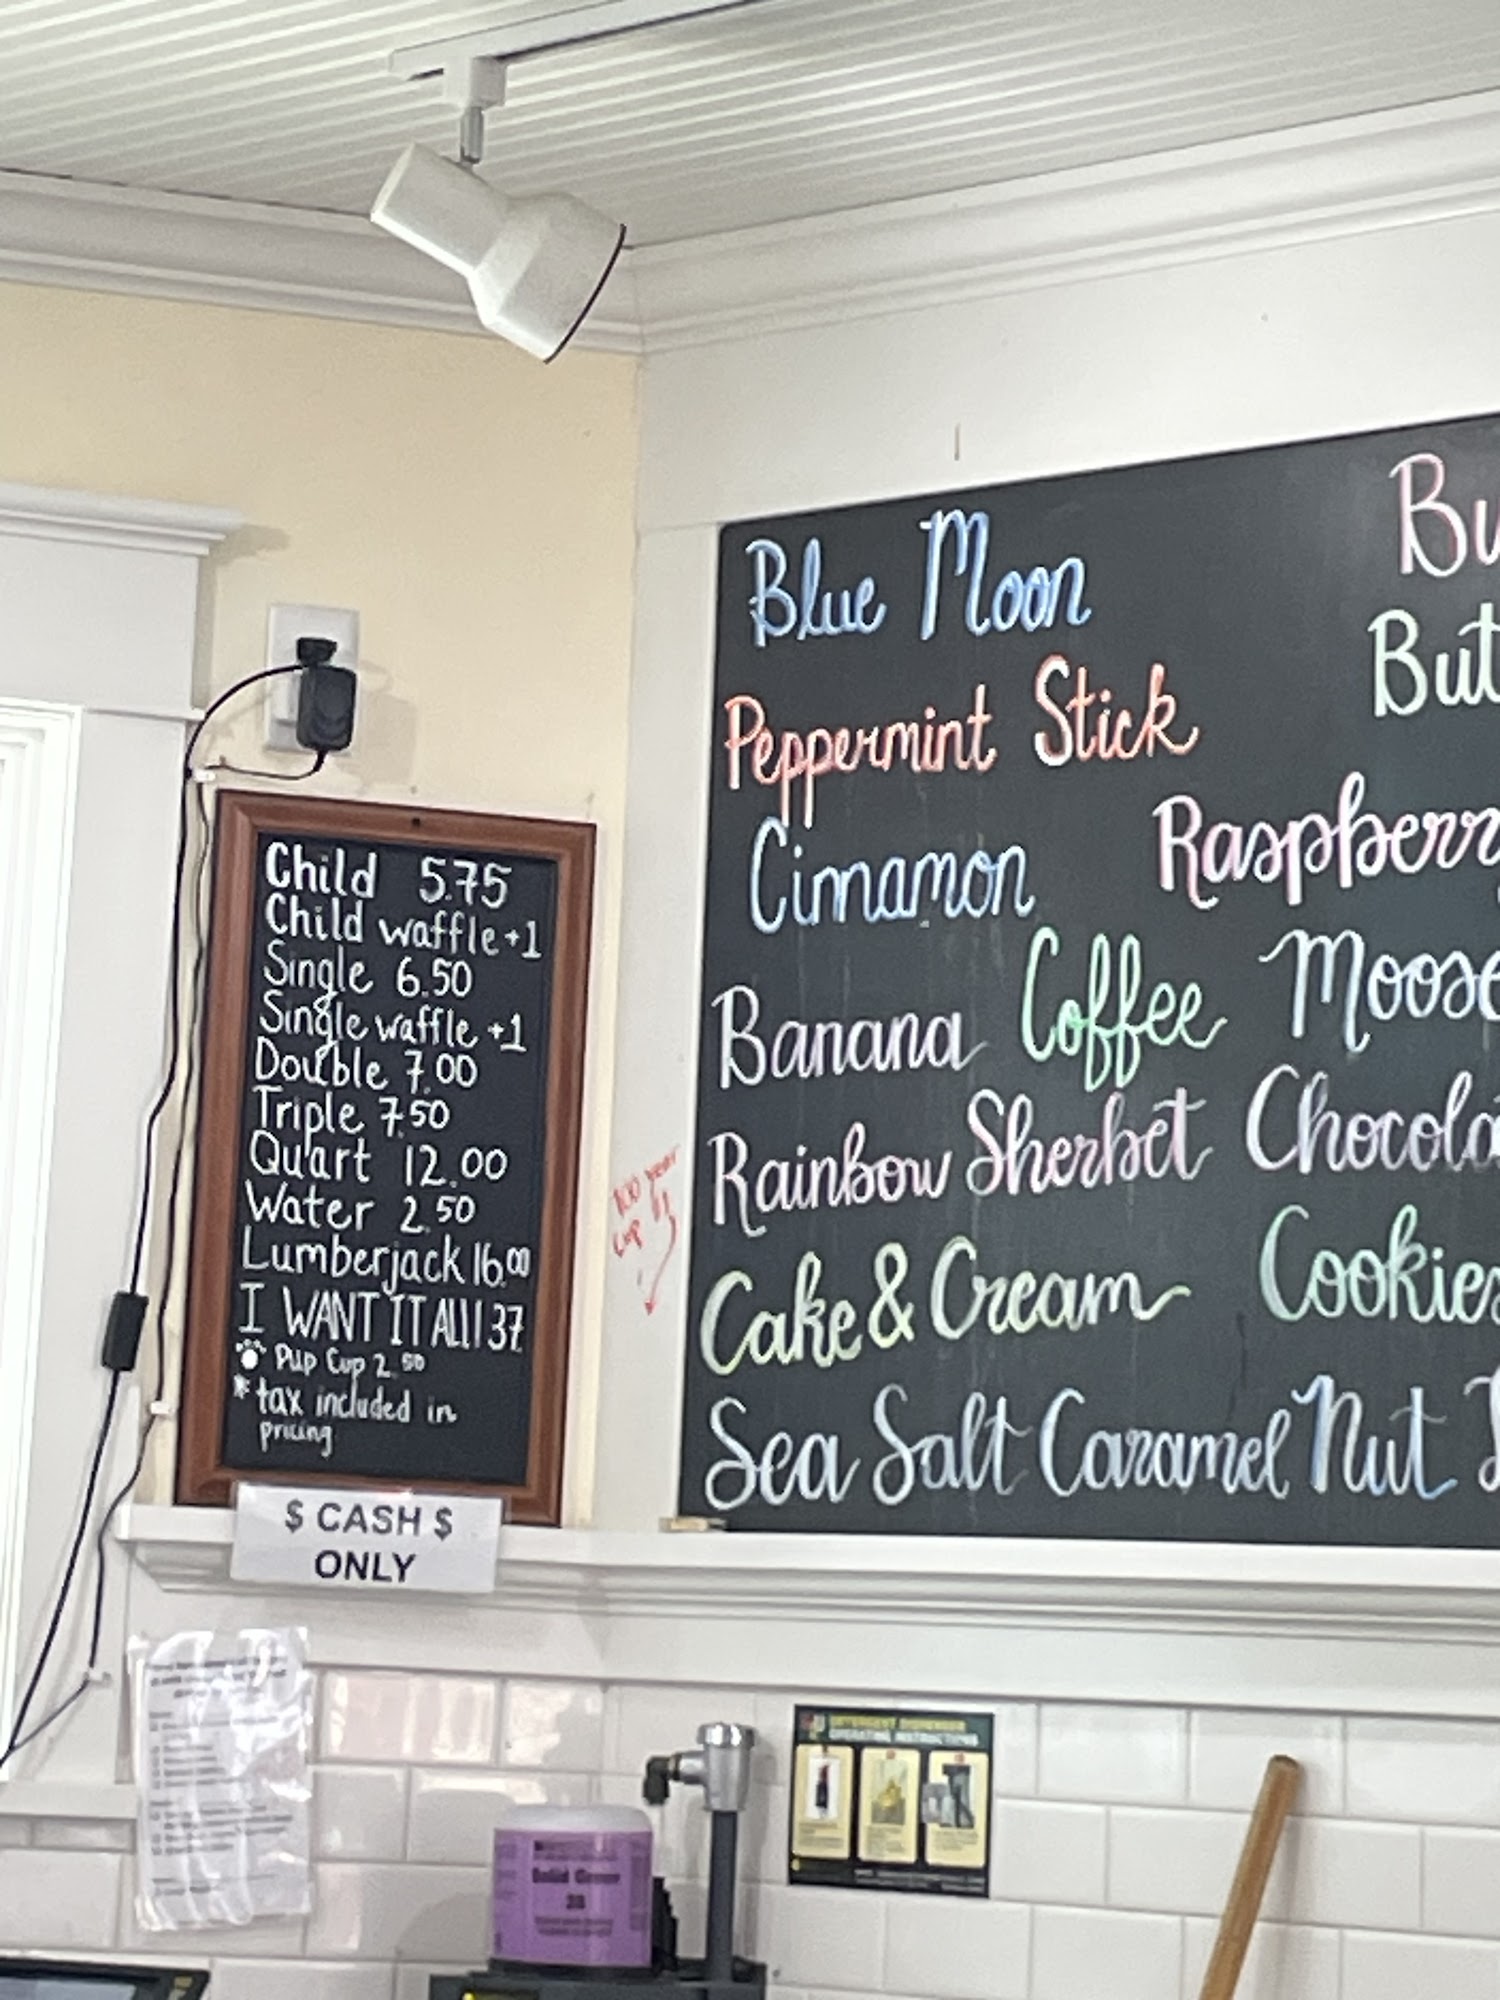 Child 5.75
Child waffle +1
Single 6.50
Single waffle +1
Double 7.00
Triple 7.50
Quart 12.00
Water 2.50
Lumberjack 16.00
I WANT IT ALL! 37
Pup Cup 2.50
* tax included in
pricing
$ CASH $
ONLY
Blue Moon
Bu
Peppermint Stick
But
Cinnamon
Raspberry
Banana Coffee Moose
Rainbow Sherbet Chocola
Cake & Cream Cookies
Sea Salt Caramel Nut
100 year
cup
DETERGENT DISPENSER
OPERATING INSTRUCTIONS
Solid